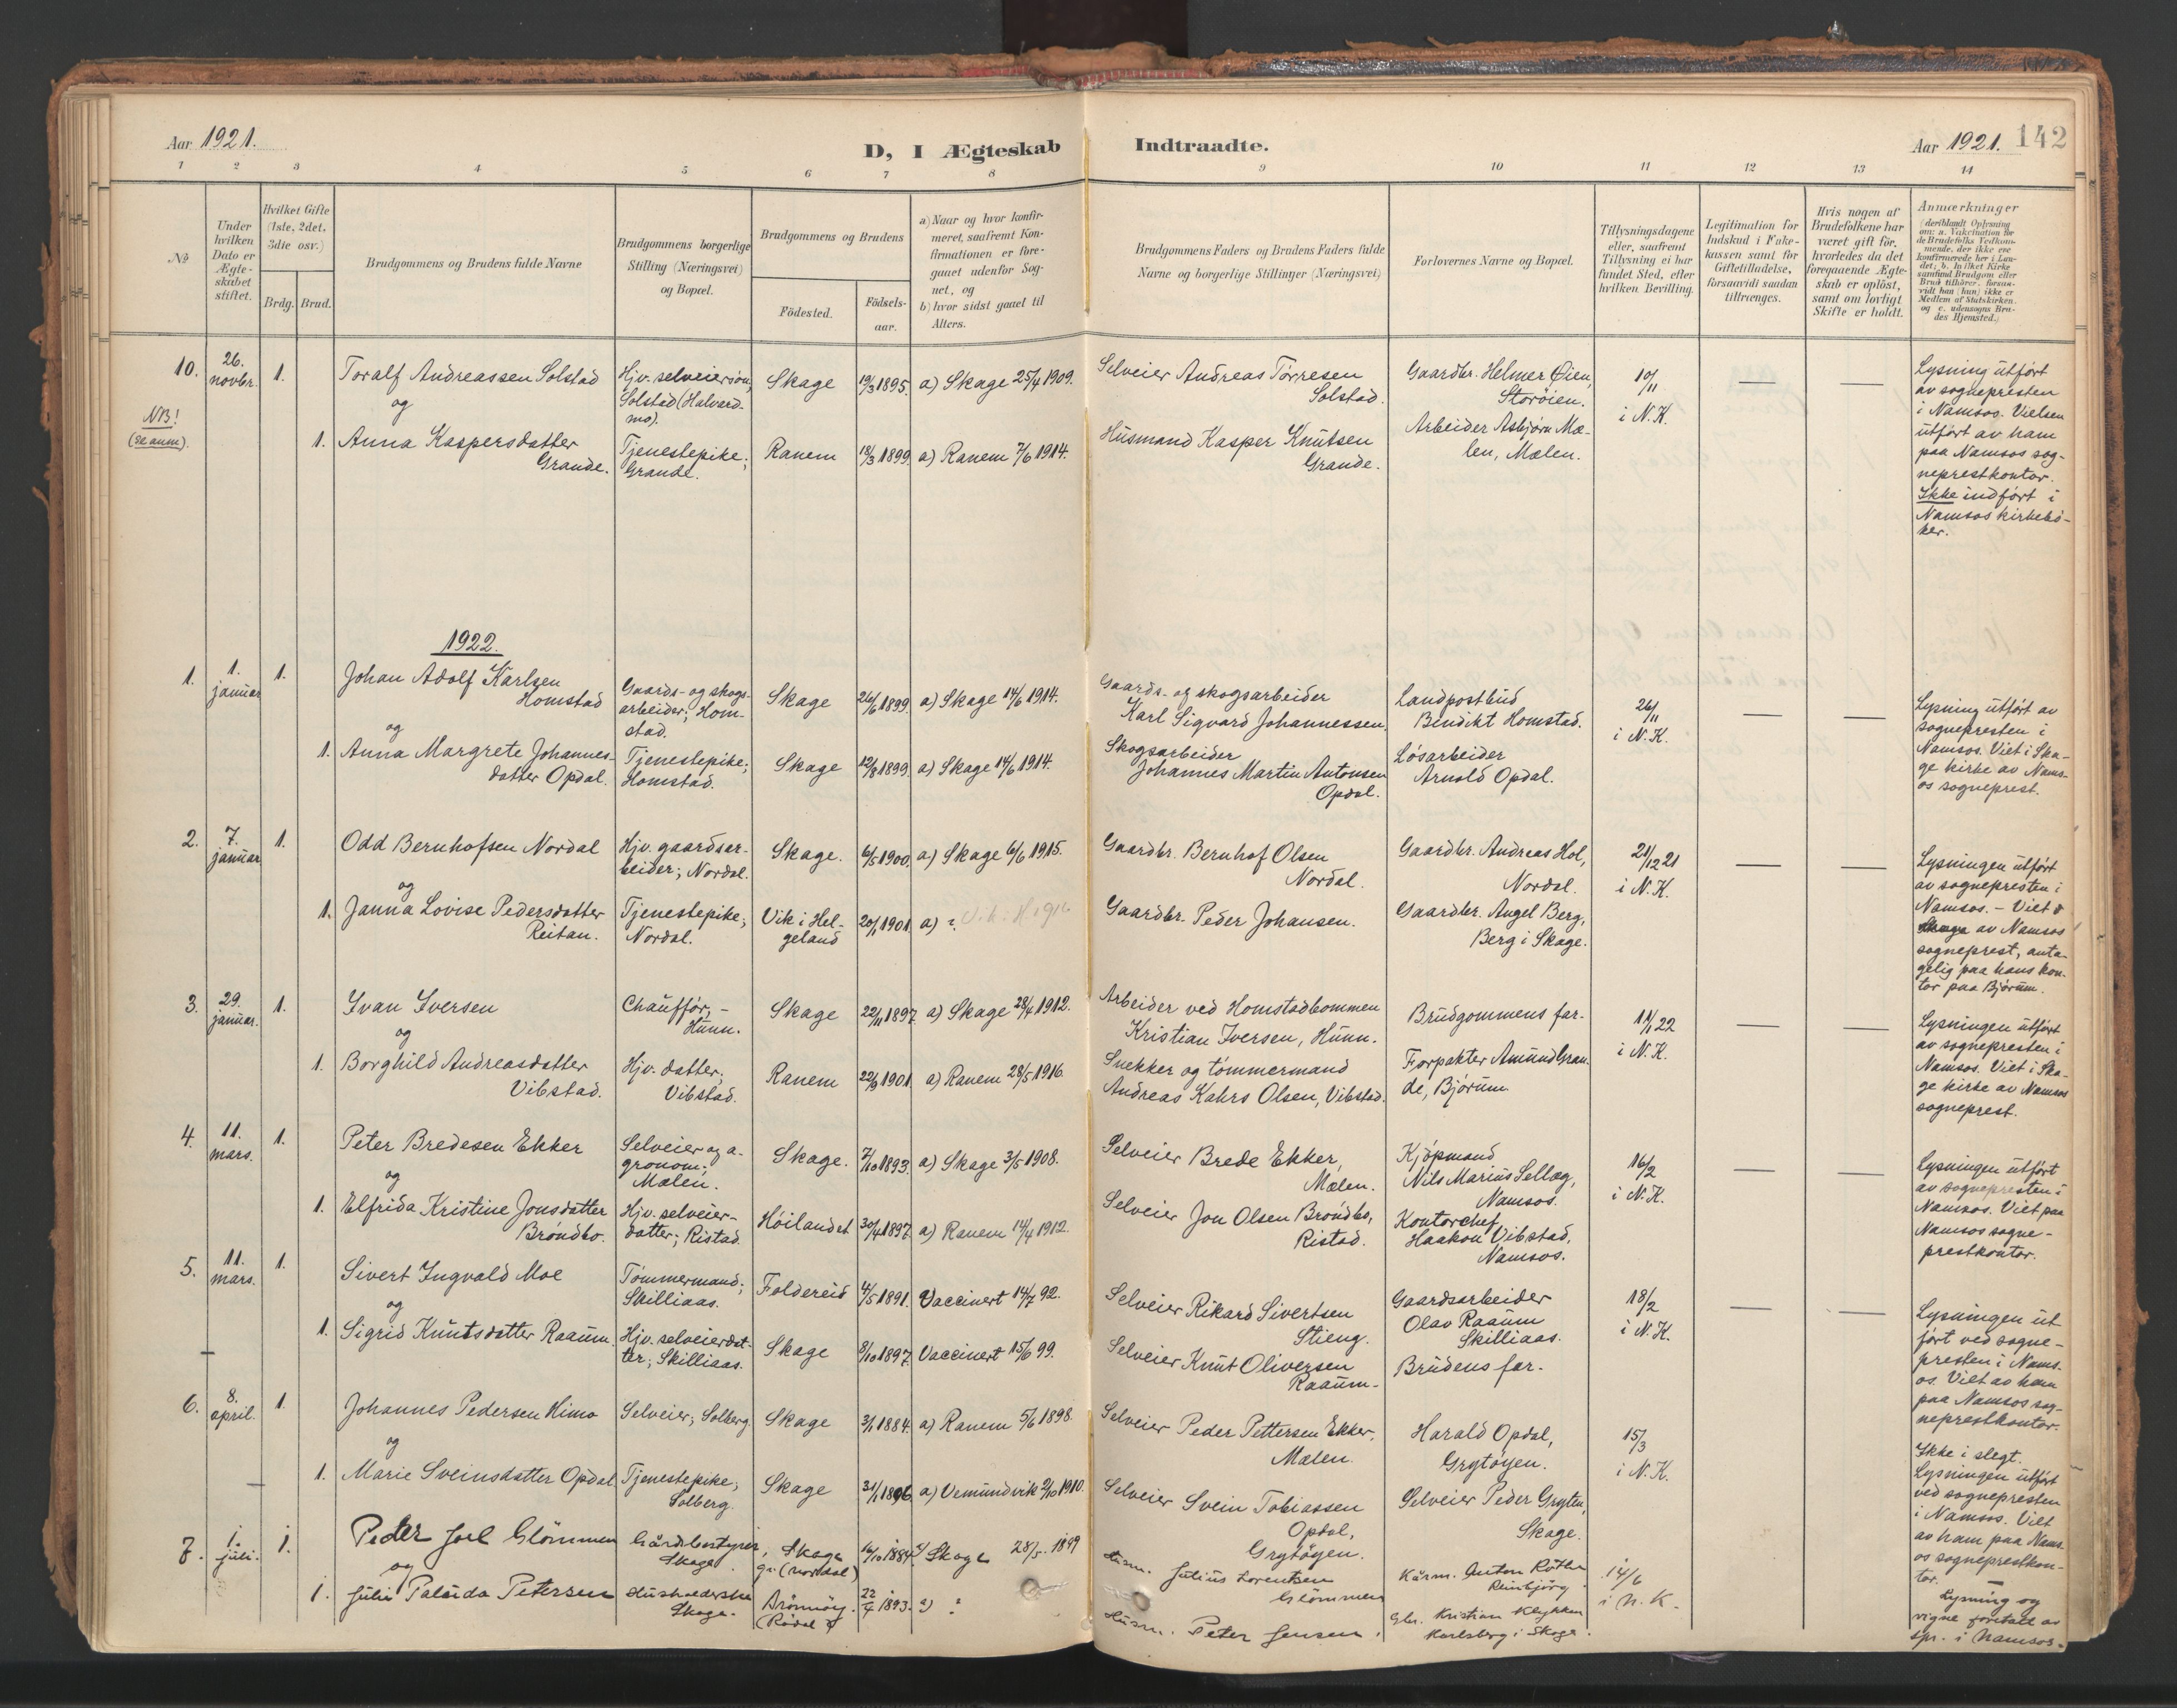 Aar 1921.
D, I Ægteskab Indtraadte.
Aar 1921. 142
1 2 3 4 5 6 7 8 9 10 11 12 13 14
No
Under hvilken Dato er Ægteskabet stiftet.
Hvilket Gifte (1ste, 2det, 3die osv.)
Brdg. Brud.
Brudgommens og Brudens fulde Navne
Brudgommens borgerlige Stilling (Næringsvei) og Bopæl.
Brudgommens og Brudens
Födested.
Födsels-aar.
a) Naar og hvor konfirmeret, saafremt Konfirmationen er foregaaet udenfor Sognet, og
b) hvor sidst gaaet til Alters.
Brudgommens Faders og Brudens Faders fulde Navne og borgerlige Stillinger (Næringsvei)
Forlovernes Navne og Bopæl.
Tillysningsdagene eller, saafremt Tillysning ei har fundet Sted, efter hvilken Bevilling.
Legitimation for Indskud i Enkekassen samt for Giftetilladelse, forsaavidt saadan tiltrænges.
Hvis nogen af Brudefolkene har været gift før, hvorledes da det foregaaende Ægteskab er oplöst, samt om lovligt Skifte er holdt.
Anmærkninger
10. 26. novbr. 1. Toralf Andreassen Solstad
Hjv. selveiersön, Solstad (Halvardmo).
Skage 19/3 1895. a) Skage 25/4 1909.
Selveier Andreas Tørresen Solstad.
Gaardbr. Helmer Øien, Storöien.
10/11 i N.K. — —
Lysning utfört av sognepresten i Namsos. Vielsen utfört av ham paa Namsos sogneprestkontor. Ikke indfört i Namsos kirkeböker.
NB! (se anm).
og
1. Anna Kaspersdatter Grande.
Tjenestepike; Grande.
Ranem 18/3 1899. a) Ranem 7/6 1914.
Husmand Kasper Knutsen Grande.
Arbeider Asbjörn Mælen, Mælen.
1922.
1. 1. januar 1. Johan Adolf Karlsen Homstad
Gaards- og skogsarbeider; Homstad.
Skage 26/6 1899. a) Skage 14/6 1914.
Gaards- og skogsarbeider Karl Sigvard Johannessen.
Landpostbud Bendikt Homstad.
26/11 i N.K. — —
Lysning utfört av sognepresten i Namsos. Viet i Skage kirke av Namsos sogneprest.
og
1. Anna Margrete Johannesdatter Opdal.
Tjenestepike; Homstad.
Skage 12/8 1899. a) Skage 14/6 1914.
Skogsarbeider Johannes Martin Antonsen Opdal.
Lösarbeider Arnold Opdal.
2. 7. januar 1. Odd Bernhofsen Nordal
Hjv. gaardsarbeider; Nordal.
Skage. 6/5 1900. a) Skage 6/6 1915.
Gaardbr. Bernhof Olsen Nordal.
Gaardbr. Andreas Hol, Nordal.
21/12 21 i N.K. — —
Lysningen utfört av sognepresten i Namsos. – Viet av Namsos sogneprest, antagelig paa hans kontor paa Björum.
og
1. Janna Lovise Pedersdatter Reitan.
Tjenestepike; Nordal.
Vik i Helgeland 20/1 1901. a) ?
Gaardbr. Peder Johansen.
Gaardbr. Angel Berg, Berg i Skage.
3. 29. januar. 1. Ivan Iversen
Chaufför, – Hunn.
Skage 22/11 1897. a) Skage 28/4 1912.
Arbeider ved Homstadbommen Kristian Iversen, Hunn.
Brudgommens far.
11/1 22 i N.K. — —
Lysningen utfört av sognepresten i Namsos. Viet i Skage kirke av Namsos sogneprest.
og
1. Borghild Andreasdatter Vibstad.
Hjv. datter; Vibstad.
Ranem 1901. a) Ranem 28/5 1916.
Snekker og tömmermand Andreas Kahrs Olsen, Vibstad.
Forpakter Amund Grande, Björum.
4. 11. mars. 1. Peter Bredesen Ekker
Selveier og agronom; Mælen.
Skage. 7/10 1893. a) Skage 3/5 1908.
Selveier Brede Ekker, Mælen.
Kjöpmand Nils Marius Sellæg, Namsos.
16/2 i N.K. — —
Lysningen utfört av sognepresten i Namsos. Viet paa Namsos sogneprestkontor.
og
1. Elfrida Kristine Jonsdatter Bröndbo.
Hjv. selveierdatter; Ristad.
Höilandet 30/4 1897. a) Ranem 14/4 1912.
Selveier Jon Olsen Bröndbo, Ristad.
Kontorchef Haakon Vibstad, Namsos.
5. 11. mars. 1. Sivert Ingvald Moe
Tömmermand; Skilliaas.
Foldereid 4/5 1891. Vaccinert 14/7 92.
Selveier Rikard Sivertsen Stieng.
Gaardsarbeider Olav Raaum Skilliaas.
18/2 i N.K. — —
Lysningen utfört ved sognepresten i Namsos. Viet av ham paa Namsos sogneprestkontor.
og
1. Sigrid Knutsdatter Raaum.
Hjv. selveierdatter; Skilliaas.
Skage 8/10 1897. Vaccinert 15/6 99.
Selveier Knut Oliversen Raaum.
Brudens far.
6. 8. april. 1. Johannes Pedersen Himo
Selveier; Solberg
Skage 3/1 1884. a) Ranem 5/6 1898.
Selveier Peder Pettersen Ekker, Mælen.
Harald Opdal, Grytöyen.
15/3 i N.K.
Ikke i slegt. Lysningen utfört ved sognepresten i Namsos. Viet av ham paa Namsos sogneprestkontor.
og
1. Marie Sveinsdatter Opdal
Tjenestepike; Solberg.
Skage 31/1 1896. a) Vemundvik 2/10 1910.
Selveier Svein Tobiassen Opdal, Grytöyen.
Selveier Peder Gryten, Skage.
7. 1. juli. 1. Peder Joel Glömmen
Gårdbestyrer, Skage
Skage (Nordal) 1884. a) Skage 28/5. 1899
Husm. Julius Lorentsen Glömmen
Kårm. Anton
14/6 i N.K.
Lysning og vigsel foretatt av spr. i Namsos.
og
1. Julie Palaida Petersen
Husholderske Skage.
Brönnöy. 22/4 1893. a) ?
Husm. Peter Jensen.
Gbr. Kristian Klykken Karlsberg i Skage.